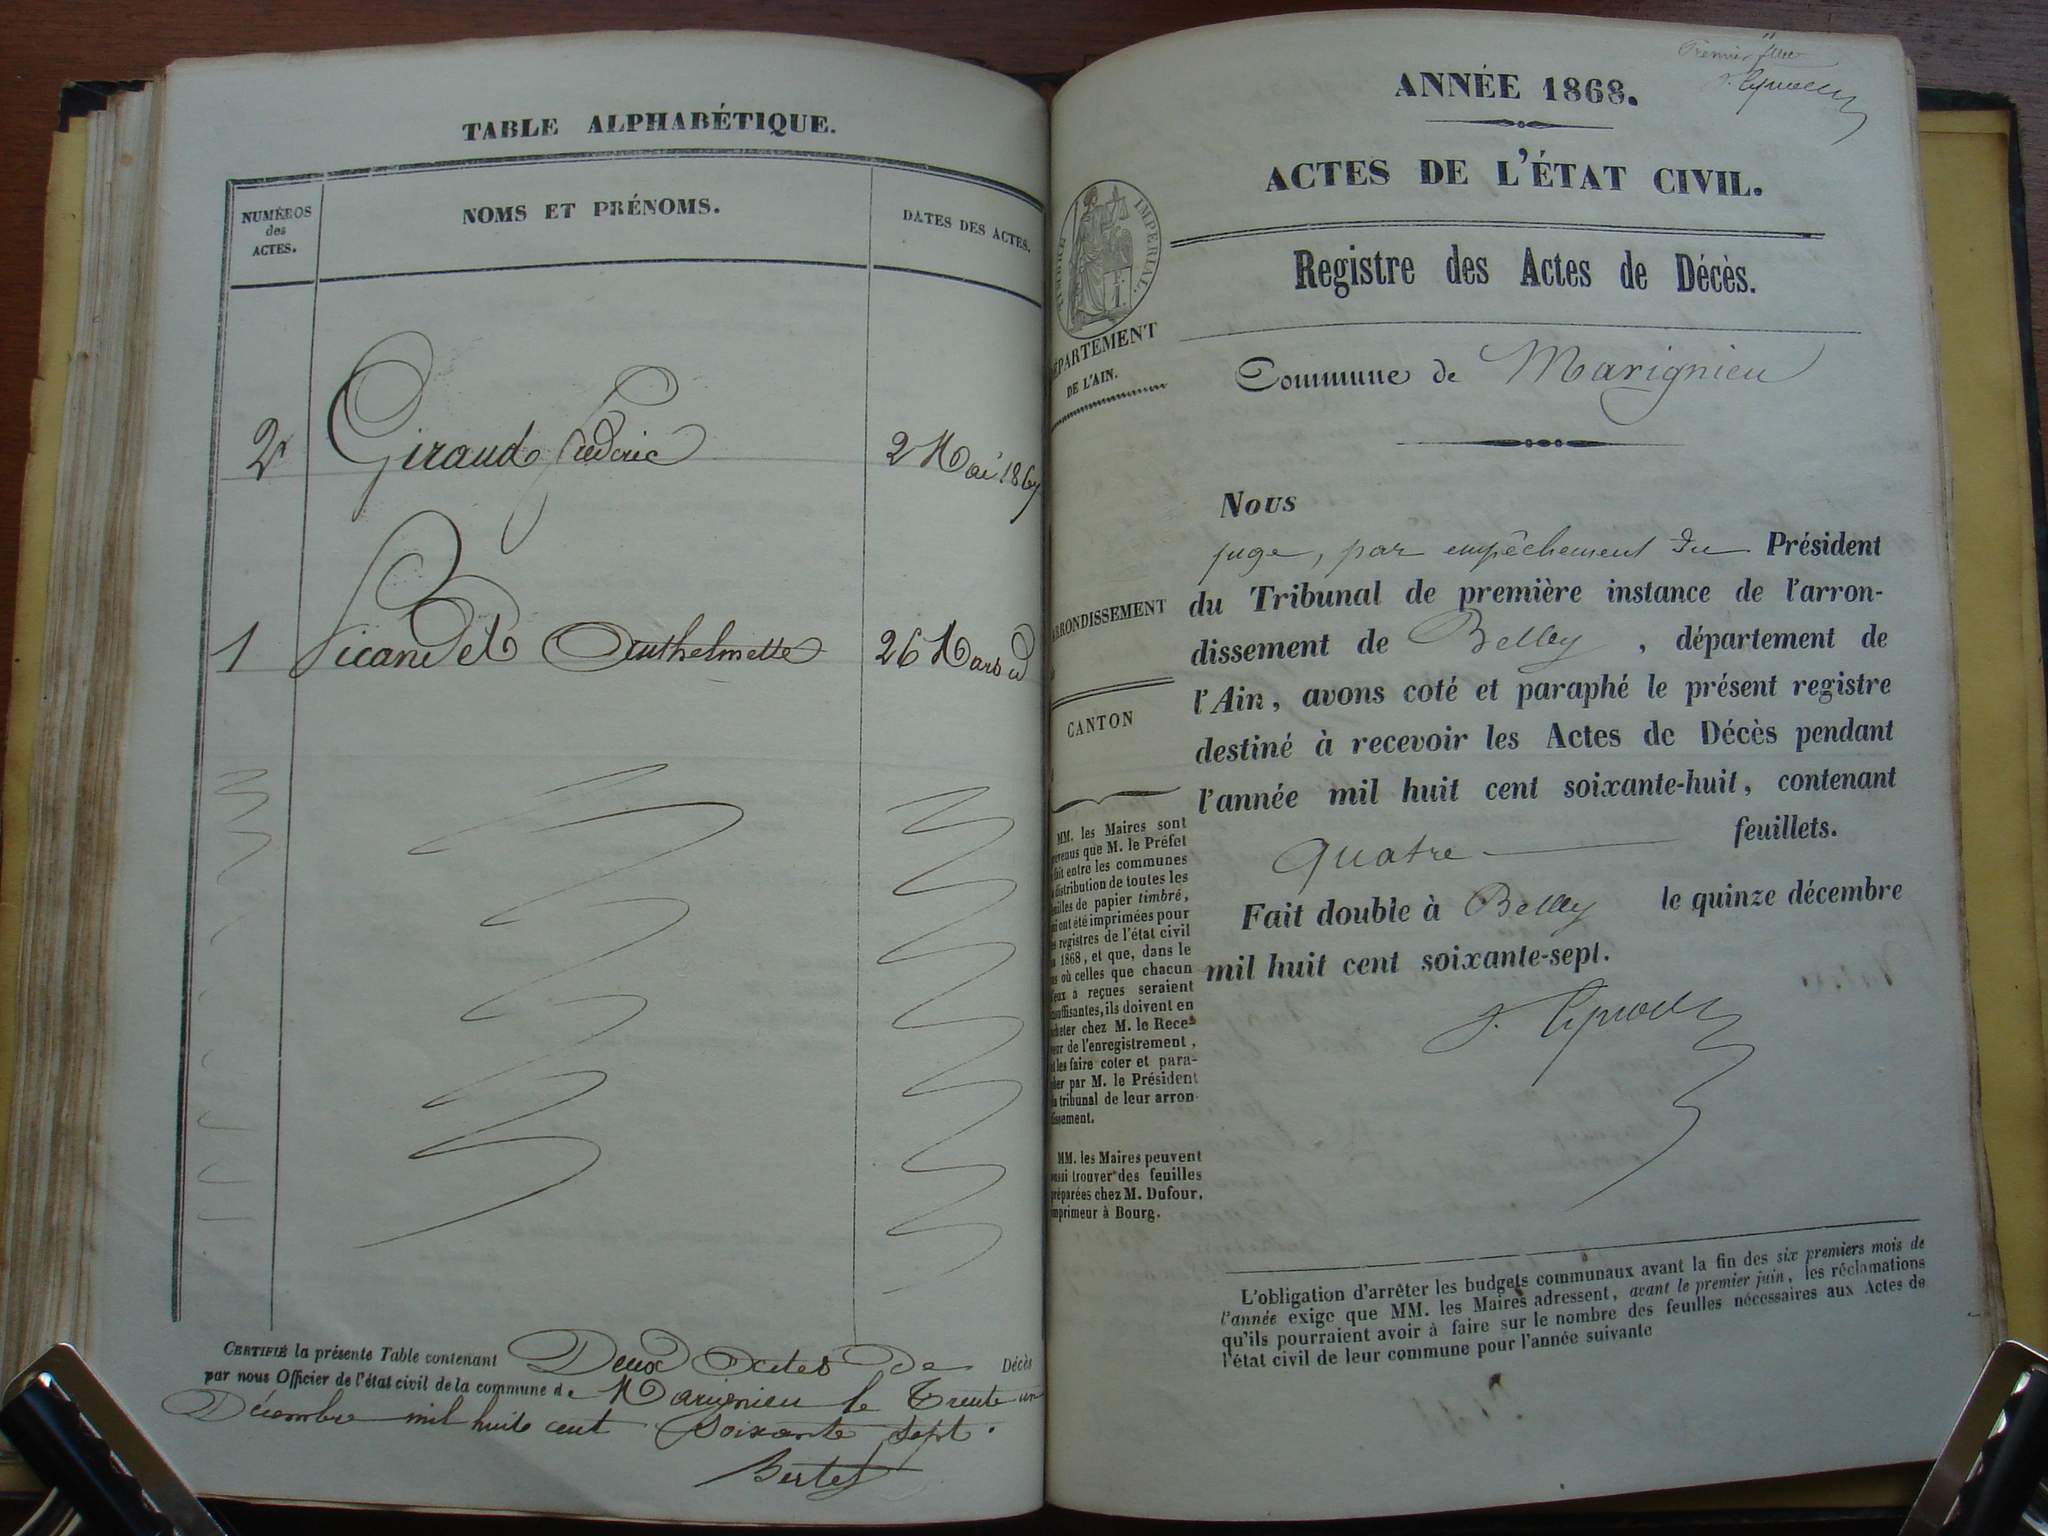 TABLE ALPHABÉTIQUE.
NUMÉROS
des
ACTES.
NOMS ET PRÉNOMS.
DATES DES ACTES.
2 Giraud Frédéric 2 Mai 1867
1 Picandet Anthelmette 26 Mars id
CERTIFIÉ la présente Table contenant Deux Actes de Décès
par nous Officier de l'état civil de la commune de Marignieu le Trente un
Décembre mil huit cent Soixante Sept.
Bertet
Premier
ANNÉE 1868.
ACTES DE L'ÉTAT CIVIL.
Registre des Actes de Décès.
TIMBRE IMPERIAL.
DÉPARTEMENT
DE L'AIN.
Commune de Marignieu
Nous
juge, par empêchement du Président
du Tribunal de première instance de l'arron-
dissement de Belley, département de
l'Ain, avons coté et paraphé le présent registre
destiné à recevoir les Actes de Décès pendant
l'année mil huit cent soixante-huit, contenant
quatre feuillets.
Fait double à Belley le quinze décembre
mil huit cent soixante-sept.
ARRONDISSEMENT
CANTON
MM. les Maires sont
prévenus que M. le Préfet
a fait entre les communes
la distribution de toutes les
feuilles de papier timbré,
qui ont été imprimées pour
les registres de l'état civil
en 1868, et que, dans le
cas où celles que chacun
d'eux a reçues seraient
insuffisantes, ils doivent en
acheter chez M. le Rece-
veur de l'enregistrement,
et les faire coter et para-
pher par M. le Président
du tribunal de leur arron-
dissement.
MM. les Maires peuvent
aussi trouver des feuilles
préparées chez M. Dufour,
imprimeur à Bourg.
L'obligation d'arrêter les budgets communaux avant la fin des six premiers mois de
l'année exige que MM. les Maires adressent, avant le premier juin, les réclamations
qu'ils pourraient avoir à faire sur le nombre des feuilles nécessaires aux Actes de
l'état civil de leur commune pour l'année suivante